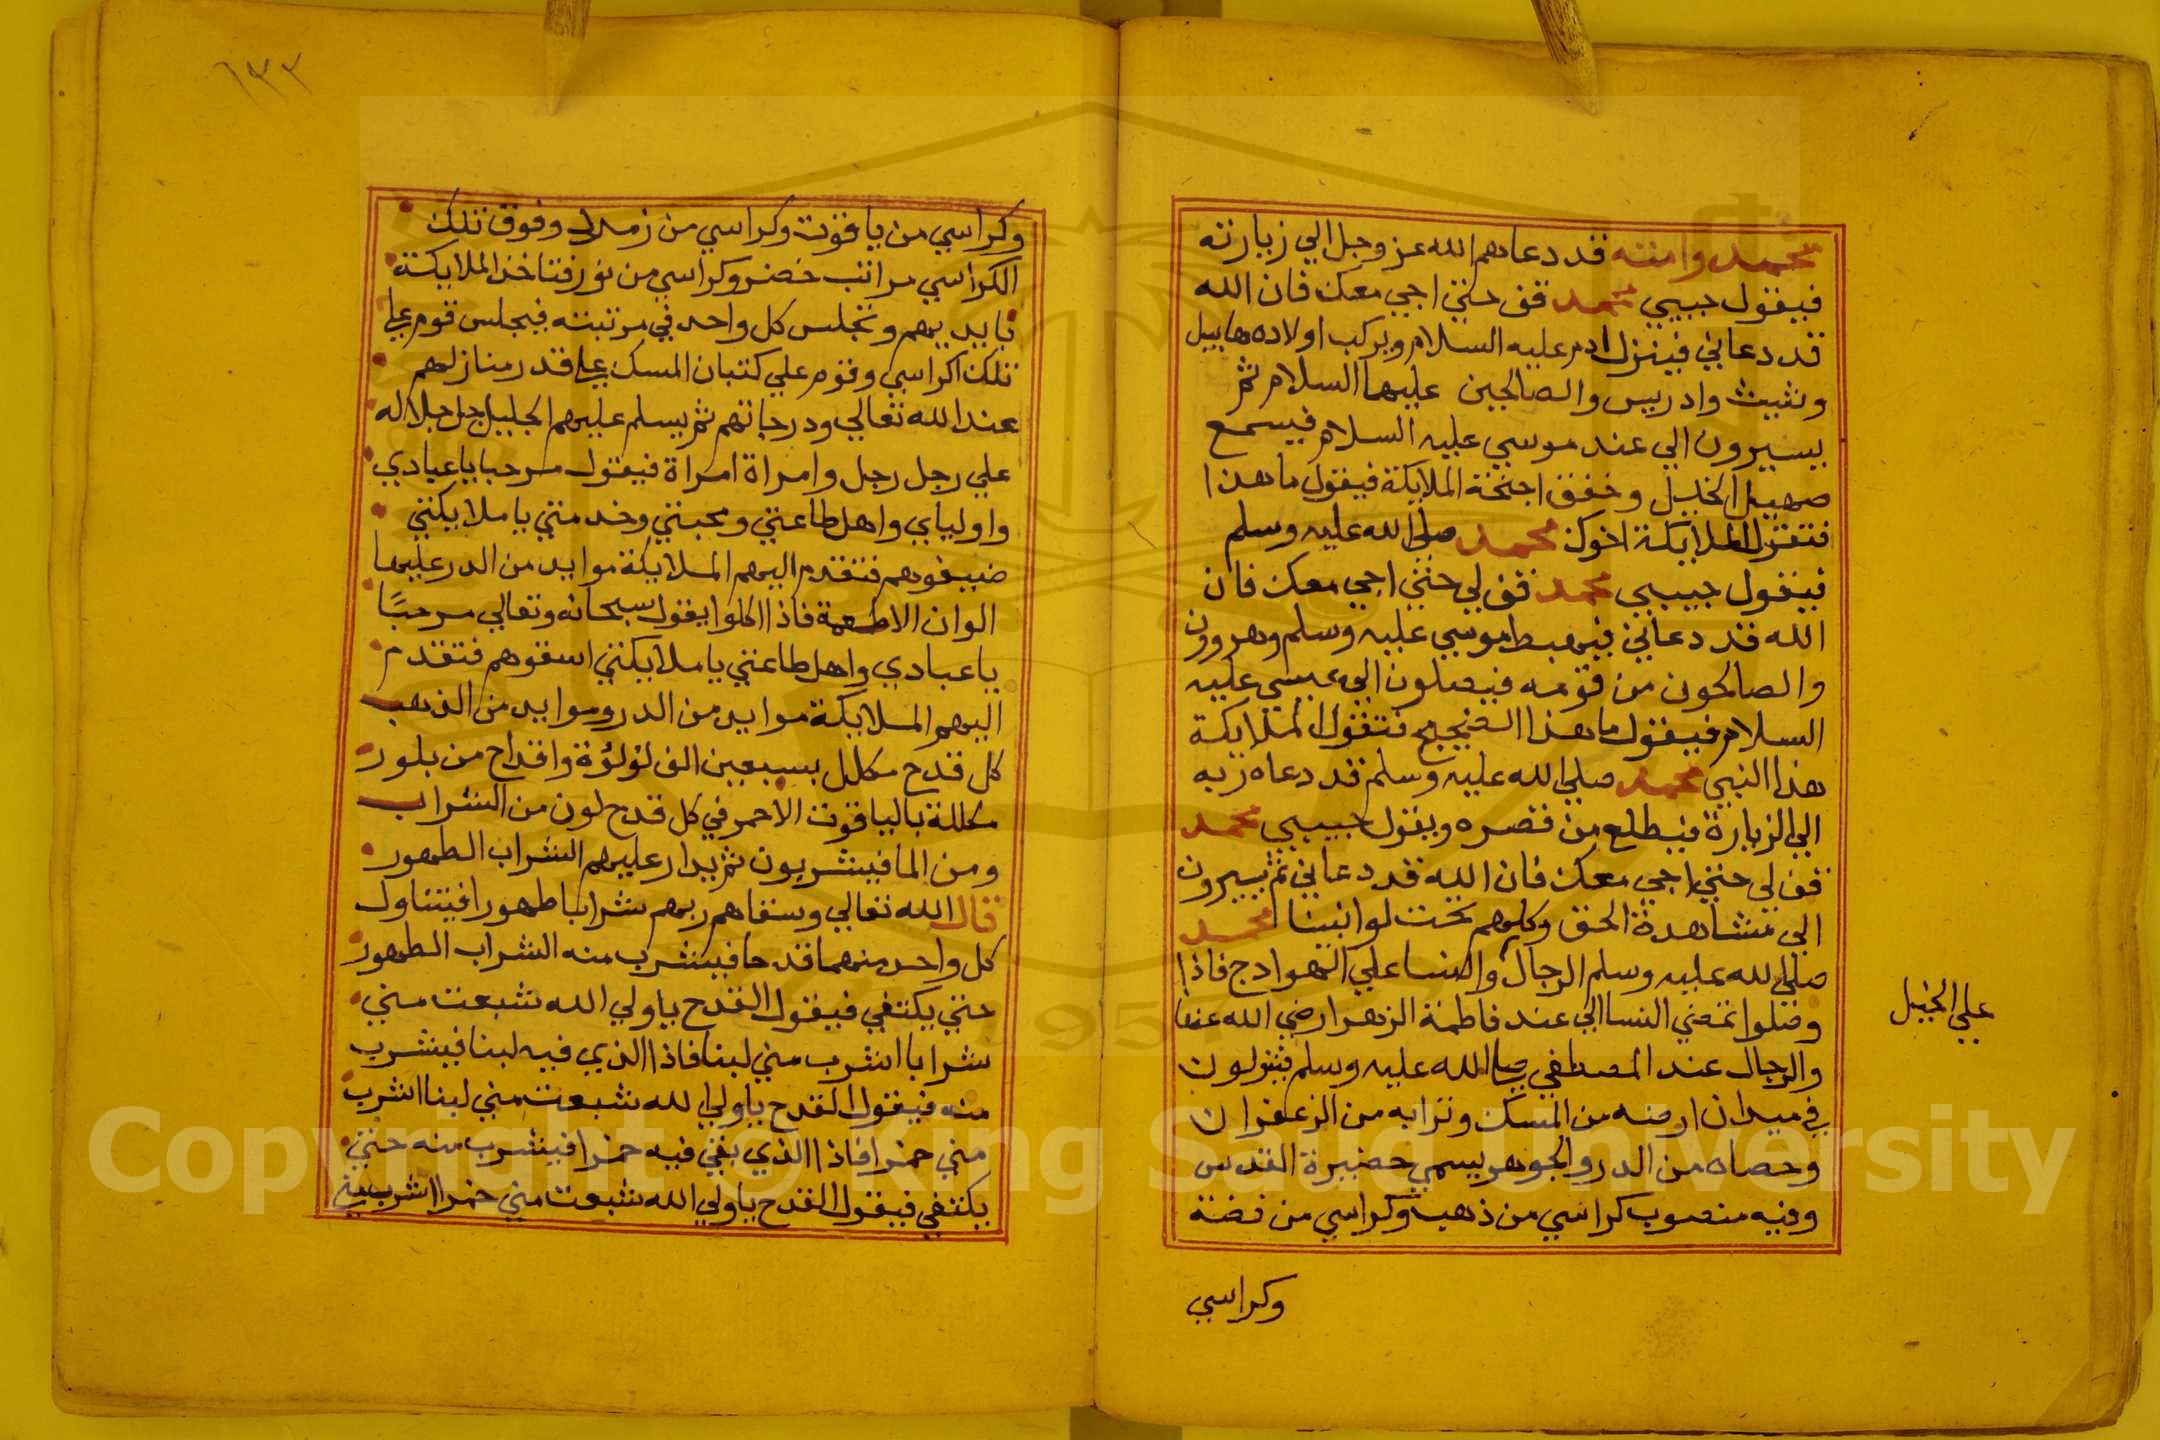 محمد وامته قد دعاهم الله عز وجل الي زيارته
فيقول حبيبي محمد قف حتي اجي معك فان الله
قد دعاني فينزل ادم عليه السلام ويركب اولاده هابيل
وشيث وادريس والصالحين عليهما السلام ثم
يسيرون الي عند موسي عليه السلام فيسمع
صهيل الخيل وخفق اجنحة الملايكة فيقول ما هذا
فتقول الملايكة اخوك محمد صلي الله عليه وسلم
فيقول حبيبي محمد قف لي حتي اجي معك فان
الله قد دعاني فيهبط موسي عليه وسلم وهرون
والصالحون من قومه فيصلون الي عيسي عليه
السلام فيقول ما هذا الضجيج فتقول الملايكة
هذا النبي محمد صلي الله عليه وسلم قد دعاه ربه
الي الزيارة فيطلع من قصره ويقول حبيبي محمد
قف لي حتي اجي معك فان الله قد دعاني ثم يسيرون
الي مشاهدة الحق وكلهم تحت لوا نبينا محمد
صلي الله عليه وسلم الرجال والنسا علي الهوادج فاذا
علي الخيل
وصلوا تمضي النسا الي عند فاطمة الزهرا رضي الله عنها
والرجال عند المصطفي صلي الله عليه وسلم فينزلون
في ميدان ارضه من المسك وترابه من الزعفران
وحصاه من الدر والجوهر يسمي حضيرة القدس
وفيه منصوب كراسي من ذهب وكراسي من فضة
وكراسي
٦٣٣
وكراسي من ياقوت وكراسي من زملد وفوق تلك
الكراسي مراتب خضر وكراسي من نور فتاخذ الملايكة
بايديهم وتجلس كل واحد في مرتبته فيجلس قوم علي
تلك اكراسي وقوم علي كتبان المسك علي قدر منازلهم
عند الله تعالي ودرجاتهم ثم يسلم عليهم الجليل جل جلاله
علي رجل رجل وامراة امراة فيقول مرحبا يا عبادي
واوليايي واهل طاعتي ومحبتي وخدمتي يا ملايكتي
ضيفوهم فتقدم اليهم الملايكة موايد من الدر عليها
الوان الاطعمة فاذا اكلوا يقول سبحانه وتعالي مرحبًا
يا عبادي واهل طاعتي يا ملايكتي اسقوهم فتقدم
اليهم الملايكة موايد من الدر وموايد من الذهب
كل قدح مكلل بسبعين الف لؤلؤة واقداح من بلور
مكللة بالياقوت الاحمر في كل قدح لون من الشراب
ومن الما فيشربون ثم يدار عليهم الشراب الطهور
قال الله تعالي وسقاهم ربهم شرابا طهورا فيتناول
كل واحد منهما قدحا فيشرب منه الشراب الطهور
حتي يكتفي فيقول القدح يا ولي الله شبعت مني
شرابا اشرب مني لبنا فاذا الذي فيه لبنا فيشرب
منه فيقول القدح يا ولي الله شبعت مني لبنا اشرب
مني خمرا فاذا الذي بقي فيه خمرا فيشرب منه حتي
يكتفي فيقول القدح يا ولي الله شبعت مني خمرا اشرب مني
Copyright © King Saud University
1957